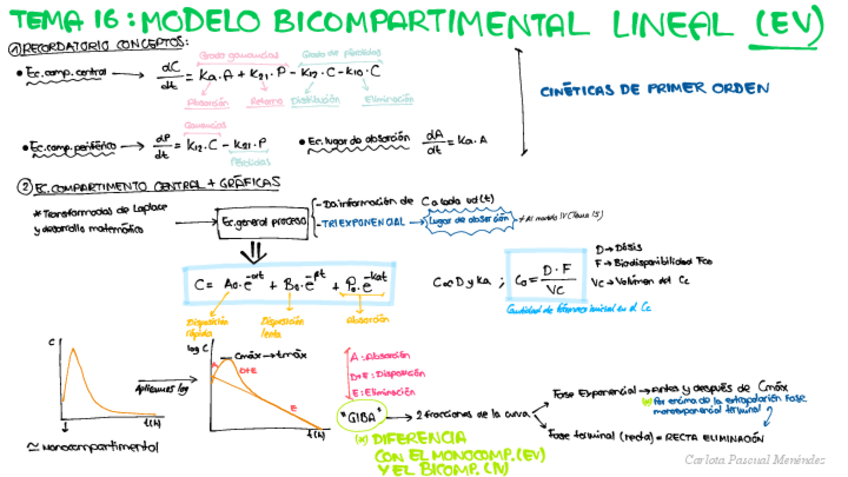 TEMA 16: MODELO BICOMPARTIMENTAL LINEAL (EV)
① RECORDATORIO CONCEPTOS:
Grado ganancias
Grado de pérdidas
• Ec. comp. central → dC/dt = Ka·A + K21·P - K12·C - K10·C
Absorción Retorno Distribución Eliminación
CINÉTICAS DE PRIMER ORDEN
Ganancias
• Ec. comp. periférico → dP/dt = K12·C - K21·P
Pérdidas
• Ec. lugar de absorción dA/dt = Ka·A
② EC. COMPARTIMENTO CENTRAL + GRÁFICAS
* Transformadas de Laplace
y desarrollo matemático
Ec. general proceso
- Da información de C a cada ud (t)
- TRIEXPONENCIAL → Lugar de absorción
≠ Al mono IV (Tema 15)
C = A0·e^-αt + B0·e^-βt + P0·e^-kat
Disposición rápida
Disposición lenta
Absorción
C∝D y Ka ; C0 = D·F / Vc
D → Dosis
F → Biodisponibilidad
Vc → Volumen del Cc
Cantidad de fármaco inicial en el Cc
C
t(h)
≃ Monocompartimental
Aplicamos log
log C
Cmáx → tmáx
A
D+E
E
t(h)
A: Absorción
D+E: Disposición
E: Eliminación
"GIBA" → 2 fracciones de la curva
(*) DIFERENCIA
CON EL MONOCOMP. (EV)
Y EL BICOMP. (IV)
Fase Exponencial → Antes y después de Cmáx
(*) Por encima de la extrapolación fase
monoexponencial terminal
Fase terminal (recta) = RECTA ELIMINACIÓN
Carlota Pascual Menéndez